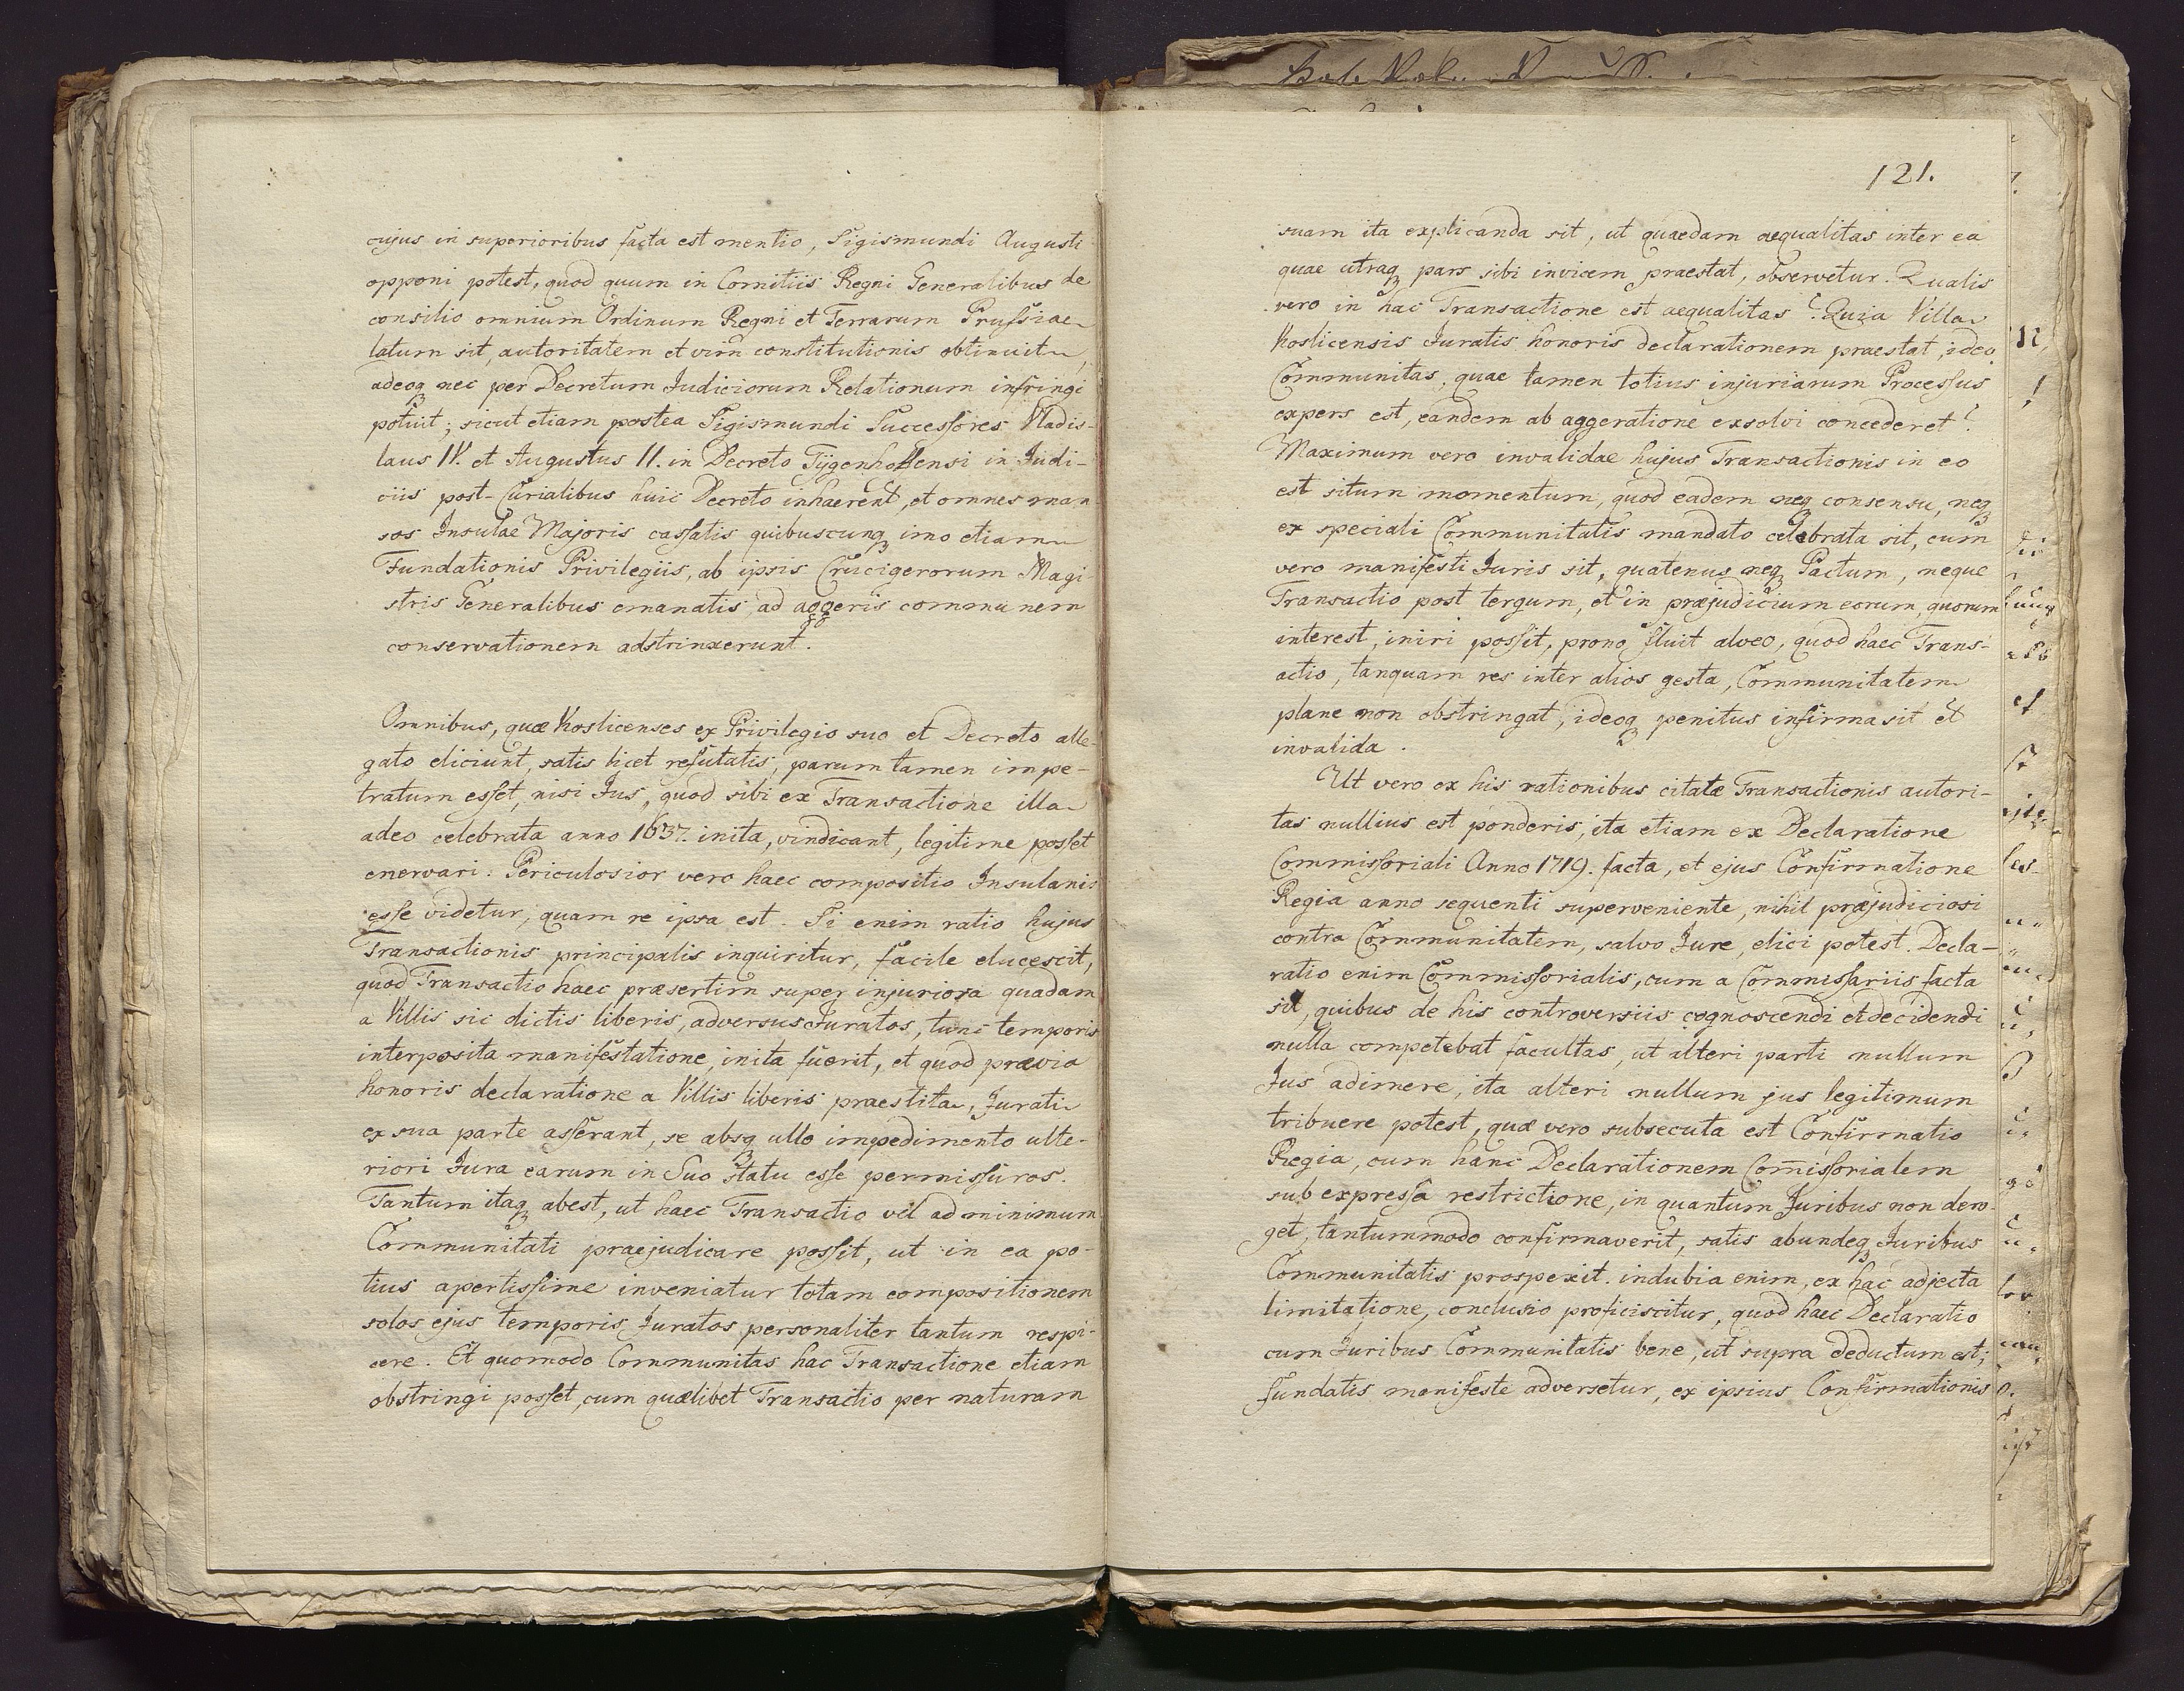 cujus in superioribus facta est mentio, Sigismundi Augusti
opponi potest, quod quum in Comitiis Regni Generalibus de
consilio omnium Ordinum Regni et Terrarum Prussiae
latum sit, autoritatem et vim constitutionis obtinuit,
adeoq nec per Decretum Judiciorum Relationum infringi
potuit; sicut etiam postea Sigismundi Successores Vladis-
laus IV. et Augustus II. in Decreto Tÿgenhoffensi in Judi-
ciis post-Curialibus huic Decreto inhaerent, et omnes man
sos Insulae Majoris cassatis quibuscunq imo etiam
Fundationis Privilegiis, ab ipsis Crucigerorum Magi-
stris Generalibus emanatis, ad aggeris communem
conservationem adstrinxerunt.
Omnibus, quæ Koslicenses ex Privilegio suo et Decreto alle-
gato eliciunt, satis licet refutatis, parum tamen impe-
tratum esset, nisi Jus, quod sibi ex Transactione illa
adeo celebrata anno 1637. inita, vindicant, legitime posset
enervari. Periculosior vero haec compositio Insulanis
esse videtur, quam re ipsa est. Si enim ratio hujus
Transactionis principalis inquiritur, facile elucescit,
quod Transactio haec præsertim super injuriosa quadam
a Villis sic dictis liberis, adversus Juratos, tunc temporis
interposita manifestatione, inita fuerit, et quod prævia
honoris declaratione a Villis liberis praestita, Jurati
ex sua parte asserant, se absq ullo impedimento ulte-
riori Jura earum in Suo statu esse permissuros.
Tantum itaq abest, ut haec Transactio vel ad minimum
Communitati praejudicare possit, ut in ea po-
tius apertissime inveniatur totam compositionem
solos ejus temporis Juratos personaliter tantum respi-
cere. Et quomodo Communitas hac Transactione etiam
obstringi posset, cum quælibet Transactio per naturam
121.
suam ita explicanda sit, ut quaedam aequalitas inter ea
quae utraq pars sibi invicem praestat, observetur. Qualis
vero in hac Transactione est aequalitas? Quia Villa
Koslicensis Juratis honoris declarationem praestat, ideo
Communitas, quae tamen totius injuriarum Processus
expers est, eandem ab aggeratione exsolvi concederet?
Maximum vero invalidae hujus Transactionis in eo
est situm momentum, quod eadem neq consensu, neq
ex speciali Communitatis mandato celebrata sit, cum
vero manifesti Juris sit, quatenus neq Pactum, neque
Transactio post tergum, et in præjudicium eorum, quorum
interest, iniri possit, prono fluit alveo, quod haec Trans-
actio, tanquam res inter alios gesta, Communitatem
plane non obstringat, ideoq penitus infirma sit et
invalida.
Ut vero ex his rationibus citatæ Transactionis autori-
tas nullius est ponderis, ita etiam ex Declaratione
Commissoriali Anno 1719. facta, et ejus Confirmatione
Regia anno sequenti superveniente, nihil præjudiciosi
contra Communitatem, salvo Jure, elici potest. Decla-
ratio enim Commissorialis, cum a Commissariis facta
sit, quibus de his controversiis cognoscendi et decidendi
nulla competebat facultas, ut alteri parti nullum
Jus adimere, ita alteri nullum jus legitimum
tribuere potest, quæ vero subsecuta est Confirmatio
Regia, cum hanc Declarationem Com̄issorialem
sub expressa restrictione, in quantum Juribus non dero-
get, tantummodo confirmaverit, satis abundeq Juribus
Communitatis prospexit. indubia enim, ex hac adjecta
limitatione, conclusio proficiscitur, quod haec Declaratio
cum Juribus Communitatis bene, ut supra deductum est,
fundatis manifeste adversetur, ex ipsius Confirmationis